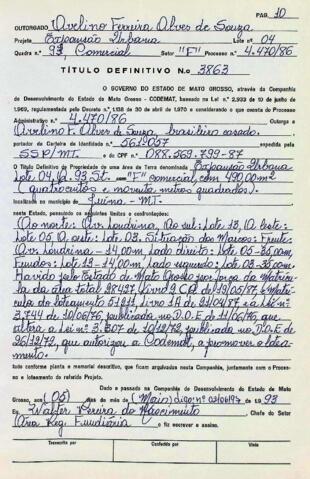 PAG. 10
OUTORGADO Avelino Ferreira Alves de Souza
Projeto Expansão Urbana Lote nº 04
Quadra n.º 93, Comercial Setor "F" Processo n.º 4.470/86
TÍTULO DEFINITIVO N.o 3863
O GOVERNO DO ESTADO DE MATO GROSSO, através da Companhia
de Desenvolvimento do Estado de Mato Grosso - CODEMAT, baseado na Lei n.º 2.933 de 10 de junho de
1969, regulamentada pelo Decreto n.º 1.138 de 30 de abril de 1970 e considerando o que consta do Processo
Administrativo n.º 4.470/86 Outorga a
Avelino F. Alves de Souza, brasileiro casado.
portador da Carteira de Identidade n.º 561.057 expedida pela
SSP/MT. e do CPF n.º 088.569.799-87
O Título Definitivo de Propriedade de uma área de Terra denominada Expansão Urbana
Lote 04, Qd. 93, St. "F" comercial, com 490,00m²
(quatrocentos e noventa metros quadrados).
localizada no município de Juína - MT.
neste Estado, possuindo os seguintes limites e confrontações:
Ao norte: Av. Londrina, Ao sul: lote 13, A leste:
Lote 05. A oeste: lote 03. Situação dos Marcos: Frente:
Av. Londrina - 14,00m Lado direito: Lote 05-35,00m,
Fundos: Lote 13-14,00m Lado esquerdo: lote 03-35,00m.
Havido pelo Estado de Mato Grosso por força da Matrícu-
la da área total 28427, livro 2 de 19/05/87, e Matrí-
cula do loteamento 51211, livro 1A de 21/04/87 e a Lei nº
3.744 de 10/06/76 publicado no D.O.E de 11/06/76, que
altera a Lei nº 3.307 de 10/12/72, publicado no D.O.E de
26/12/72, que autorizou a Codemat, a promover o lotea-
mento.
tudo conforme planta e memorial descritivo, que ficam arquivados nesta Companhia, juntamente com o Proces-
so e loteamento do referido Projeto.
Dado e passado na Companhia de Desenvolvimento do Estado de Mato
Grosso, aos (05) dias do mês de (Maio) digo: nº 03/06/97 de 1.993
Eu, Walter Pereira do Nascimento Chefe do Setor
Área Reg. Fundiária o fiz escrever e assino.
Transcrito por
Conferido por
Visto